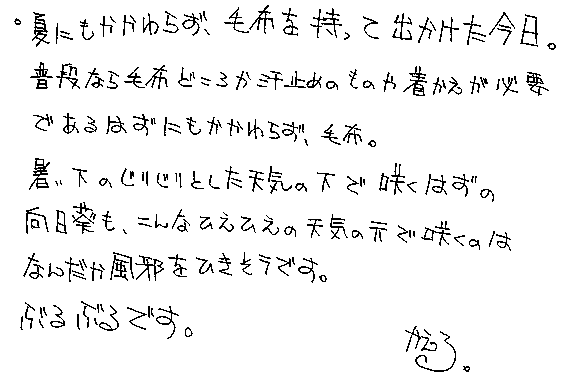 。夏にもかかわらず、毛布を持って出かけた今日。
普段なら毛布どころか汗止めのものや着かえが必要
であるはずにもかかわらず、毛布。
暑い下のじりじりとした天気の下で咲くはずの
向日葵も、こんなひえひえの天気の元で咲くのは
なんだか風邪をひきそうです。
ぶるぶるです。
かえろ。